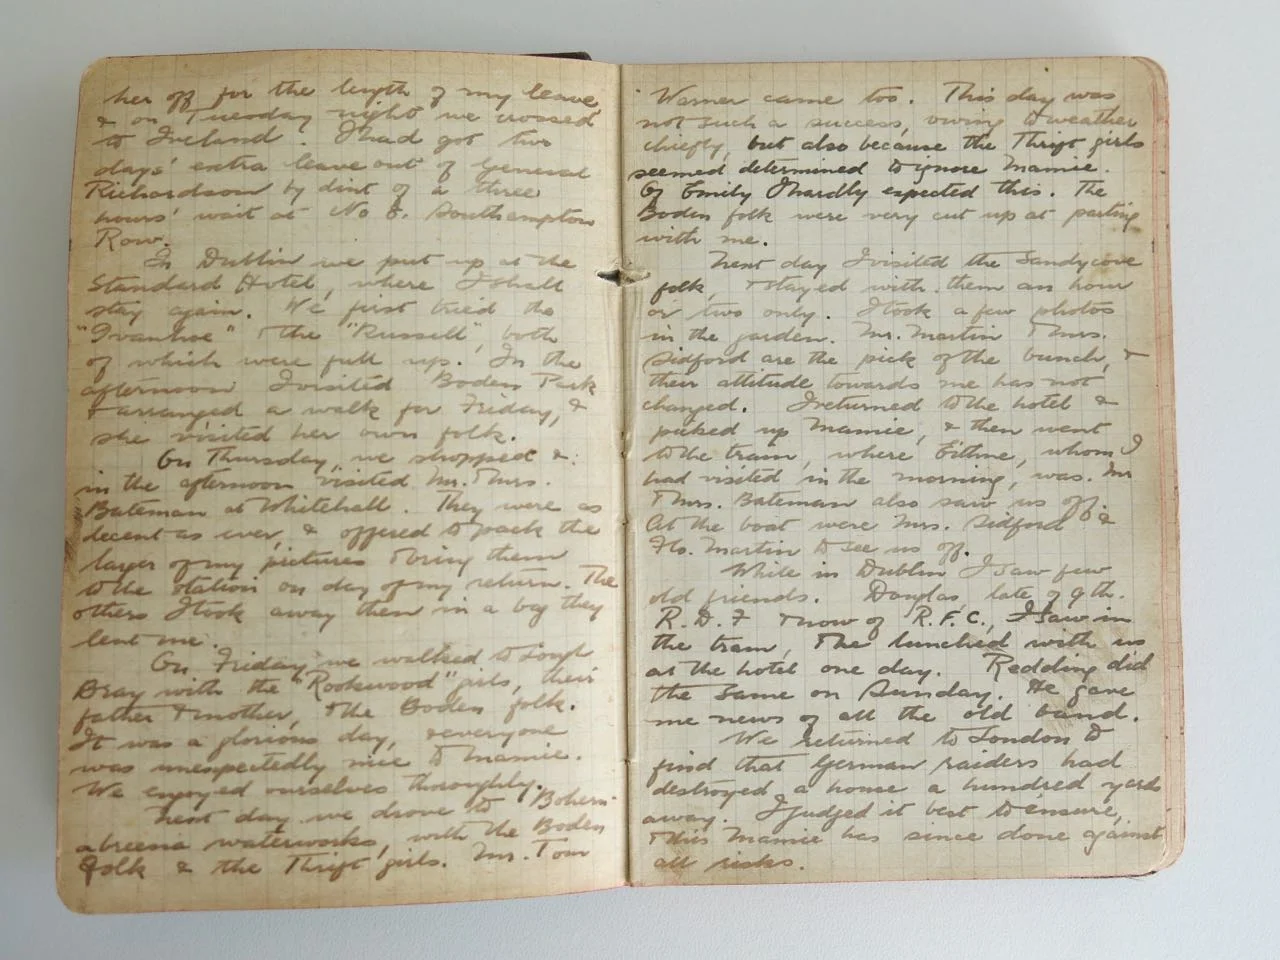 her off for the length of my leave
& on Tuesday night we crossed
to Ireland. I had got two
days' extra leave out of General
Richardson by dint of a three
hours' wait at No 8. Southampton
Row.
In Dublin we put up at the
Standard Hotel, where I shall
stay again. We first tried the
"Ivanhoe" & the "Russell", both
of which were full up. In the
afternoon I visited Boden Park
& arranged a walk for Friday, &
she visited her own folk.
On Thursday, we shopped &
in the afternoon visited Mr. & Mrs.
Bateman at Whitehall. They were as
decent as ever, & offered to pack the
larger of my pictures & bring them
to the station on day of my return. The
others I took away then in a bag they
lent me.
On Friday we walked to Lough
Bray with the "Rookwood" girls, their
father & mother, & the Boden folk.
It was a glorious day, & everyone
was unexpectedly nice to Mamie.
We enjoyed ourselves thoroughly.
Next day we drove to Boher-
abreena waterworks, with the Boden
folk & the Thrift girls. Mr. Tom
Warner came too. This day was
not such a success, owing to weather
chiefly, but also because the Thrift girls
seemed determined to ignore Mamie.
Of Emily I hardly expected this. The
Boden folk were very cut up at parting
with me.
Next day I visited the Sandycove
folk, & stayed with them an hour
or two only. I took a few photos
in the garden. Mr. Martin & Mrs.
Sidford are the pick of the bunch, &
their attitude towards me has not
changed. I returned to the hotel &
picked up Mamie, & then went
to the train, where Eithne, whom I
had visited in the morning, was. Mr
& Mrs. Bateman also saw us off &
at the boat were Mrs. Sidford &
Flo. Martin to see us off.
While in Dublin I saw few
old friends. Douglas, late of 9th.
R.D.F & now of R.F.C., I saw in
the tram, & he lunched with us
at the hotel one day. Redding did
the same on Sunday. He gave
me news of all the old band.
We returned to London to
find that German raiders had
destroyed a house a hundred yards
away. I judged it best to ensure,
& this Mamie has since done against
all risks.